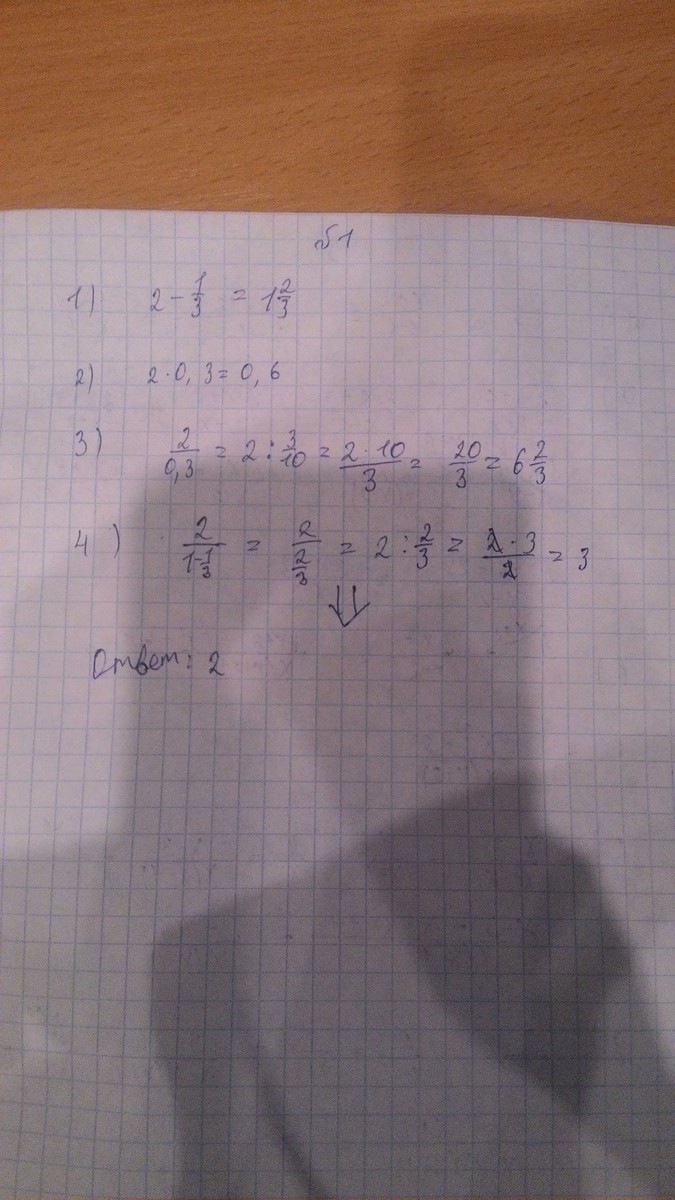 №1
1) 2 - 1/3 = 1 2/3
2) 2 · 0,3 = 0,6
3) 2/0,3 = 2 : 3/10 = 2 · 10/3 = 20/3 = 6 2/3
4) 2/(1-1/3) = 2/(2/3) = 2 : 2/3 = 2 · 3/2 = 3
⇓
Ответ: 2